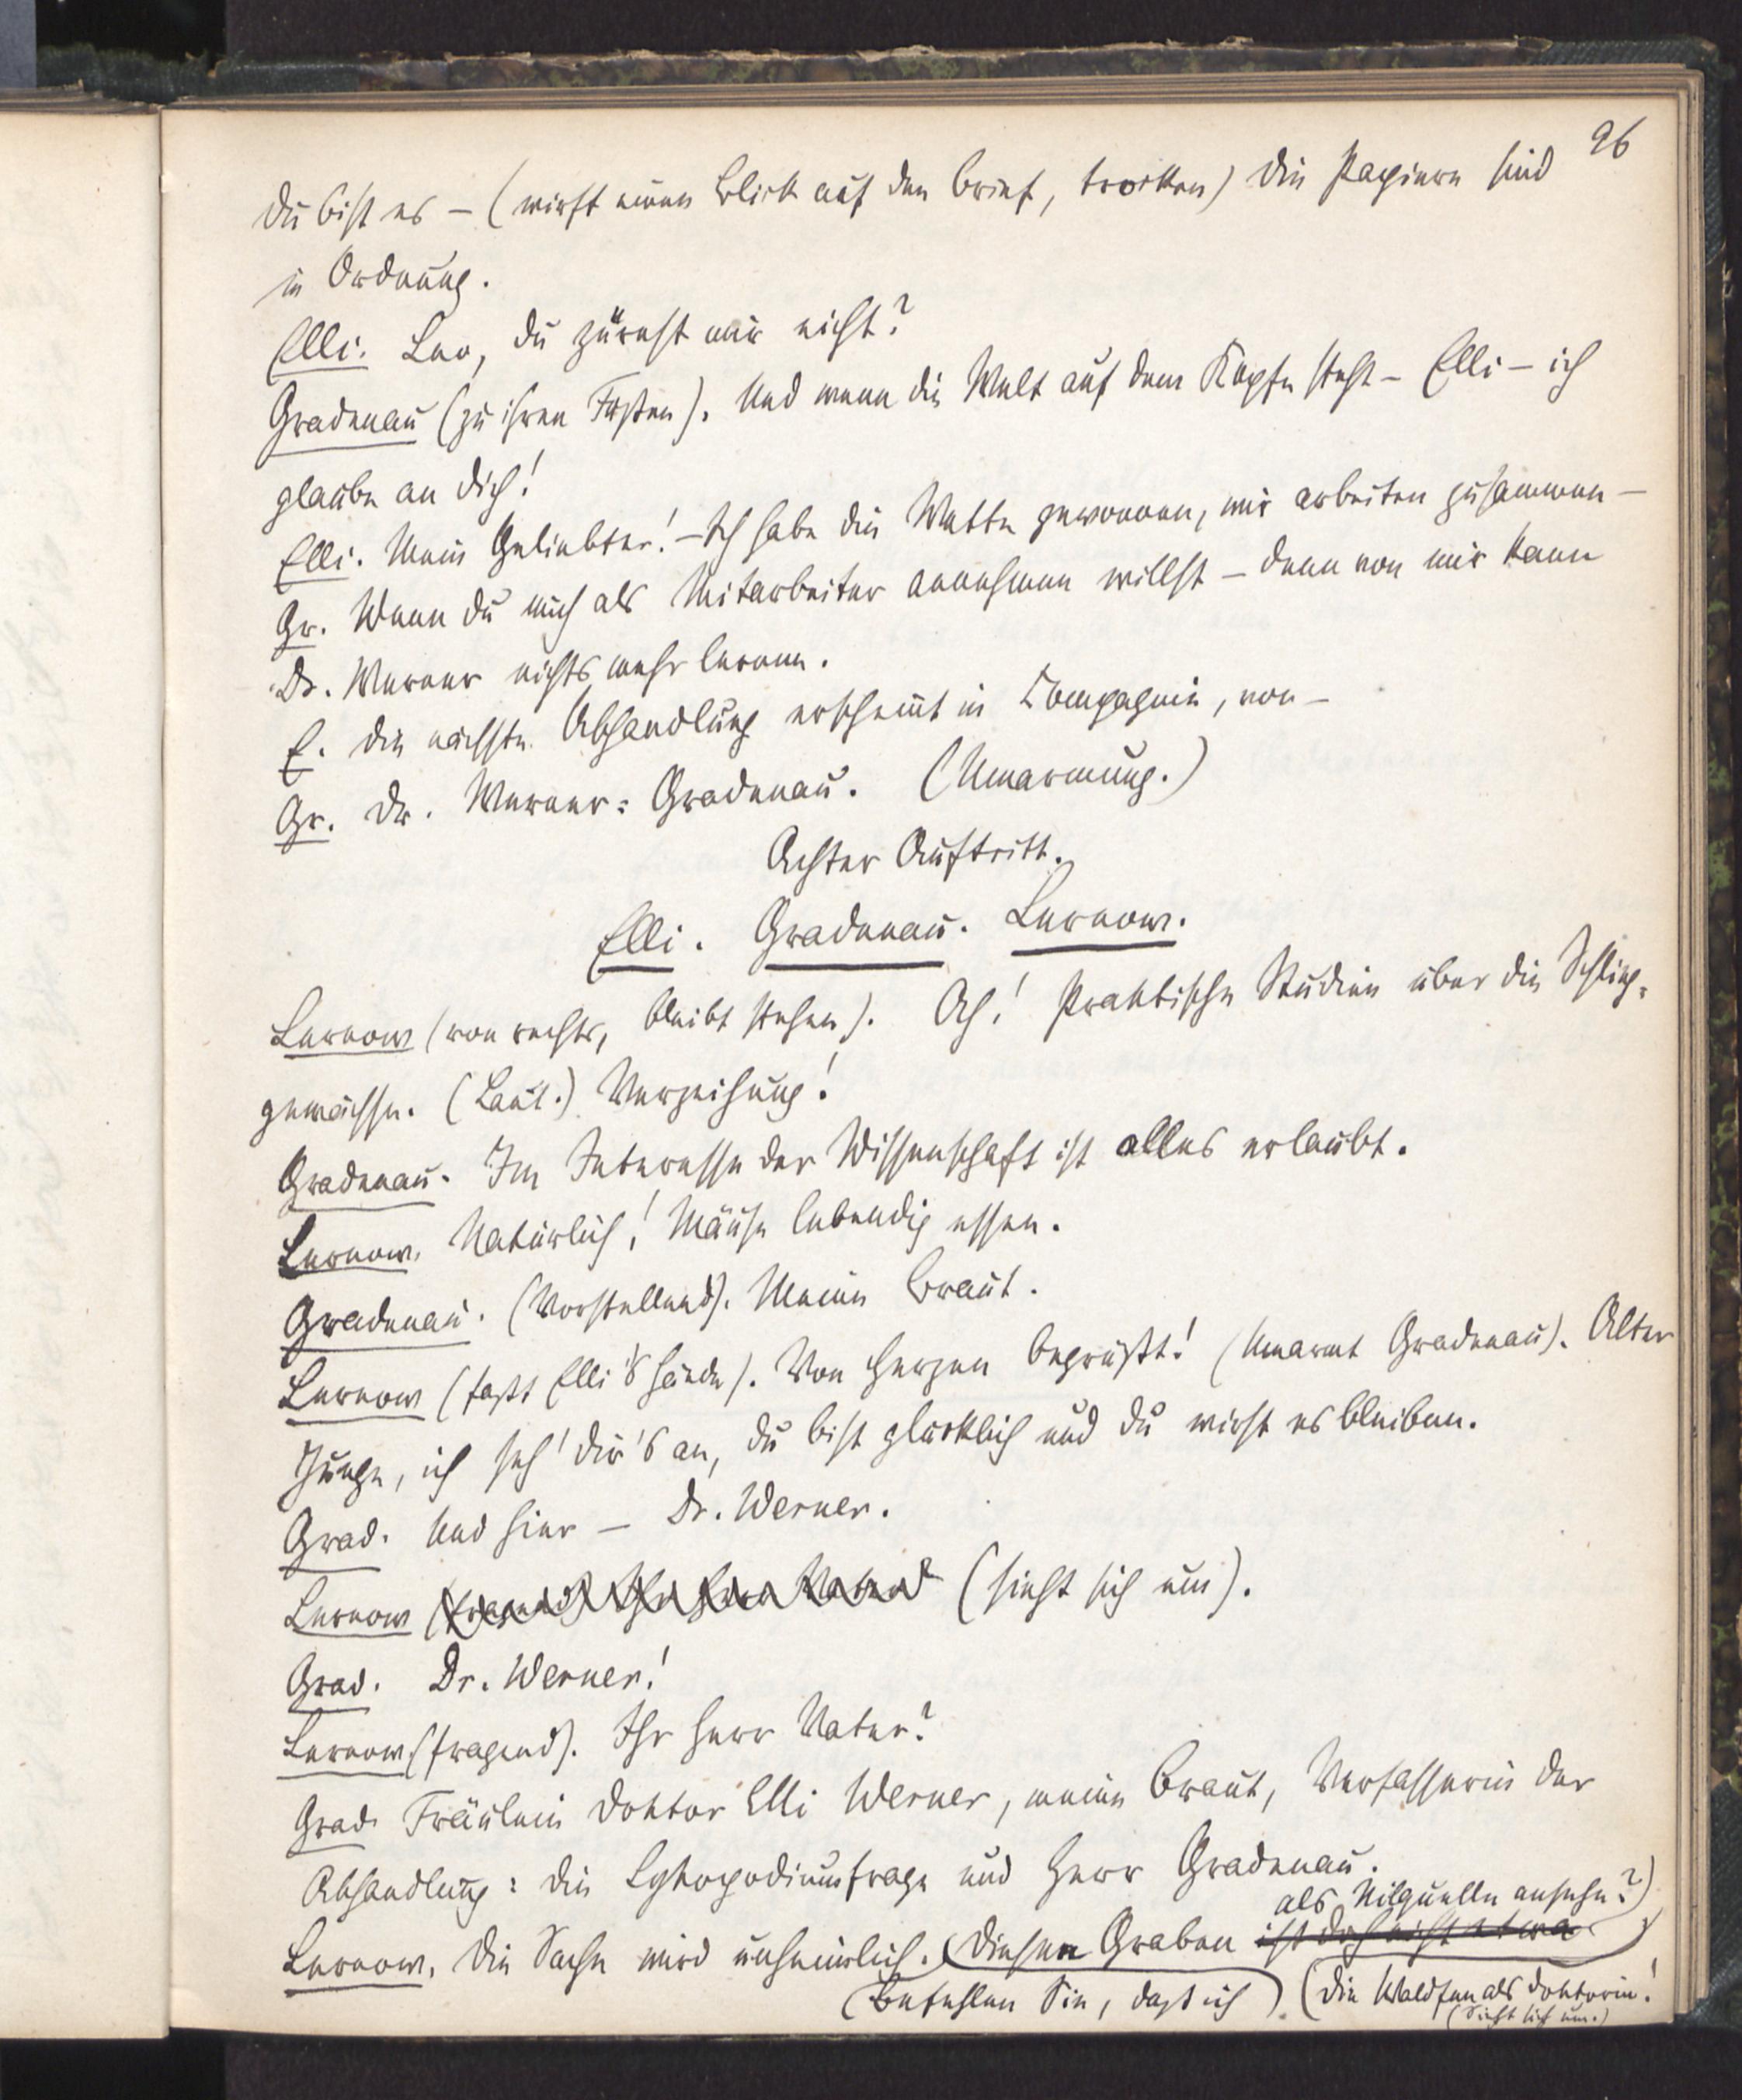 26
Du bist es – (wirft einen Blick auf den Brief, trocken) Die Papiere sind
in Ordnung.
Elli. Leo, du zürnst mir nicht?
Gradenau (zu ihren Füßen). Und wenn die Welt auf dem Kopfe steht – Elli – ich
glaube an dich!
Elli. Mein Geliebter! – Ich habe die Wette gewonnen, wir arbeiten zusammen –
Gr. Wenn du mich als Mitarbeiter annehmen willst – denn von mir kann
Dr. Werner nichts mehr lernen.
E. Die nächste Abhandlung erscheint in Compagnie, von –
Gr. Dr. Werner=Gradenau. (Umarmung.)
Achter Auftritt.
Elli. Gradenau. Lernow.
Lernow (von rechts, bleibt stehen). Ah! Praktische Studien über die Schling=
gewächse. (Laut.) Verzeihung!
Gradenau. Im Interesse der Wissenschaft ist alles erlaubt.
Lernow. Natürlich! Mäuse lebendig essen.
Gradenau. (Vorstellend). Meine Braut.
Lernow (faßt Elli's Hände). Von Herzen begrüßt! (Umarmt Gradenau). Alter
Junge, ich seh' dir's an, du bist glücklich und du wirst es bleiben.
Grad. Und hier – Dr. Werner.
Lernow (fragend) Ihr Herr Vater? (sieht sich um).
Grad. Dr. Werner!
Lernow (fragend). Ihr Herr Vater?
Grad. Fräulein Doktor Elli Werner, meine Braut, Verfasserin der
Abhandlung: Die Lykopodiumfrage und Herr Gradenau.
als Nilquelle ansehe?)
Lernow. Die Sache wird unheimlich. (Diesen Graben ist doch nicht etwa
(Befehlen Sie, daß ich) (Die Waldfee als Doktorin!
(Sieht sich um.)